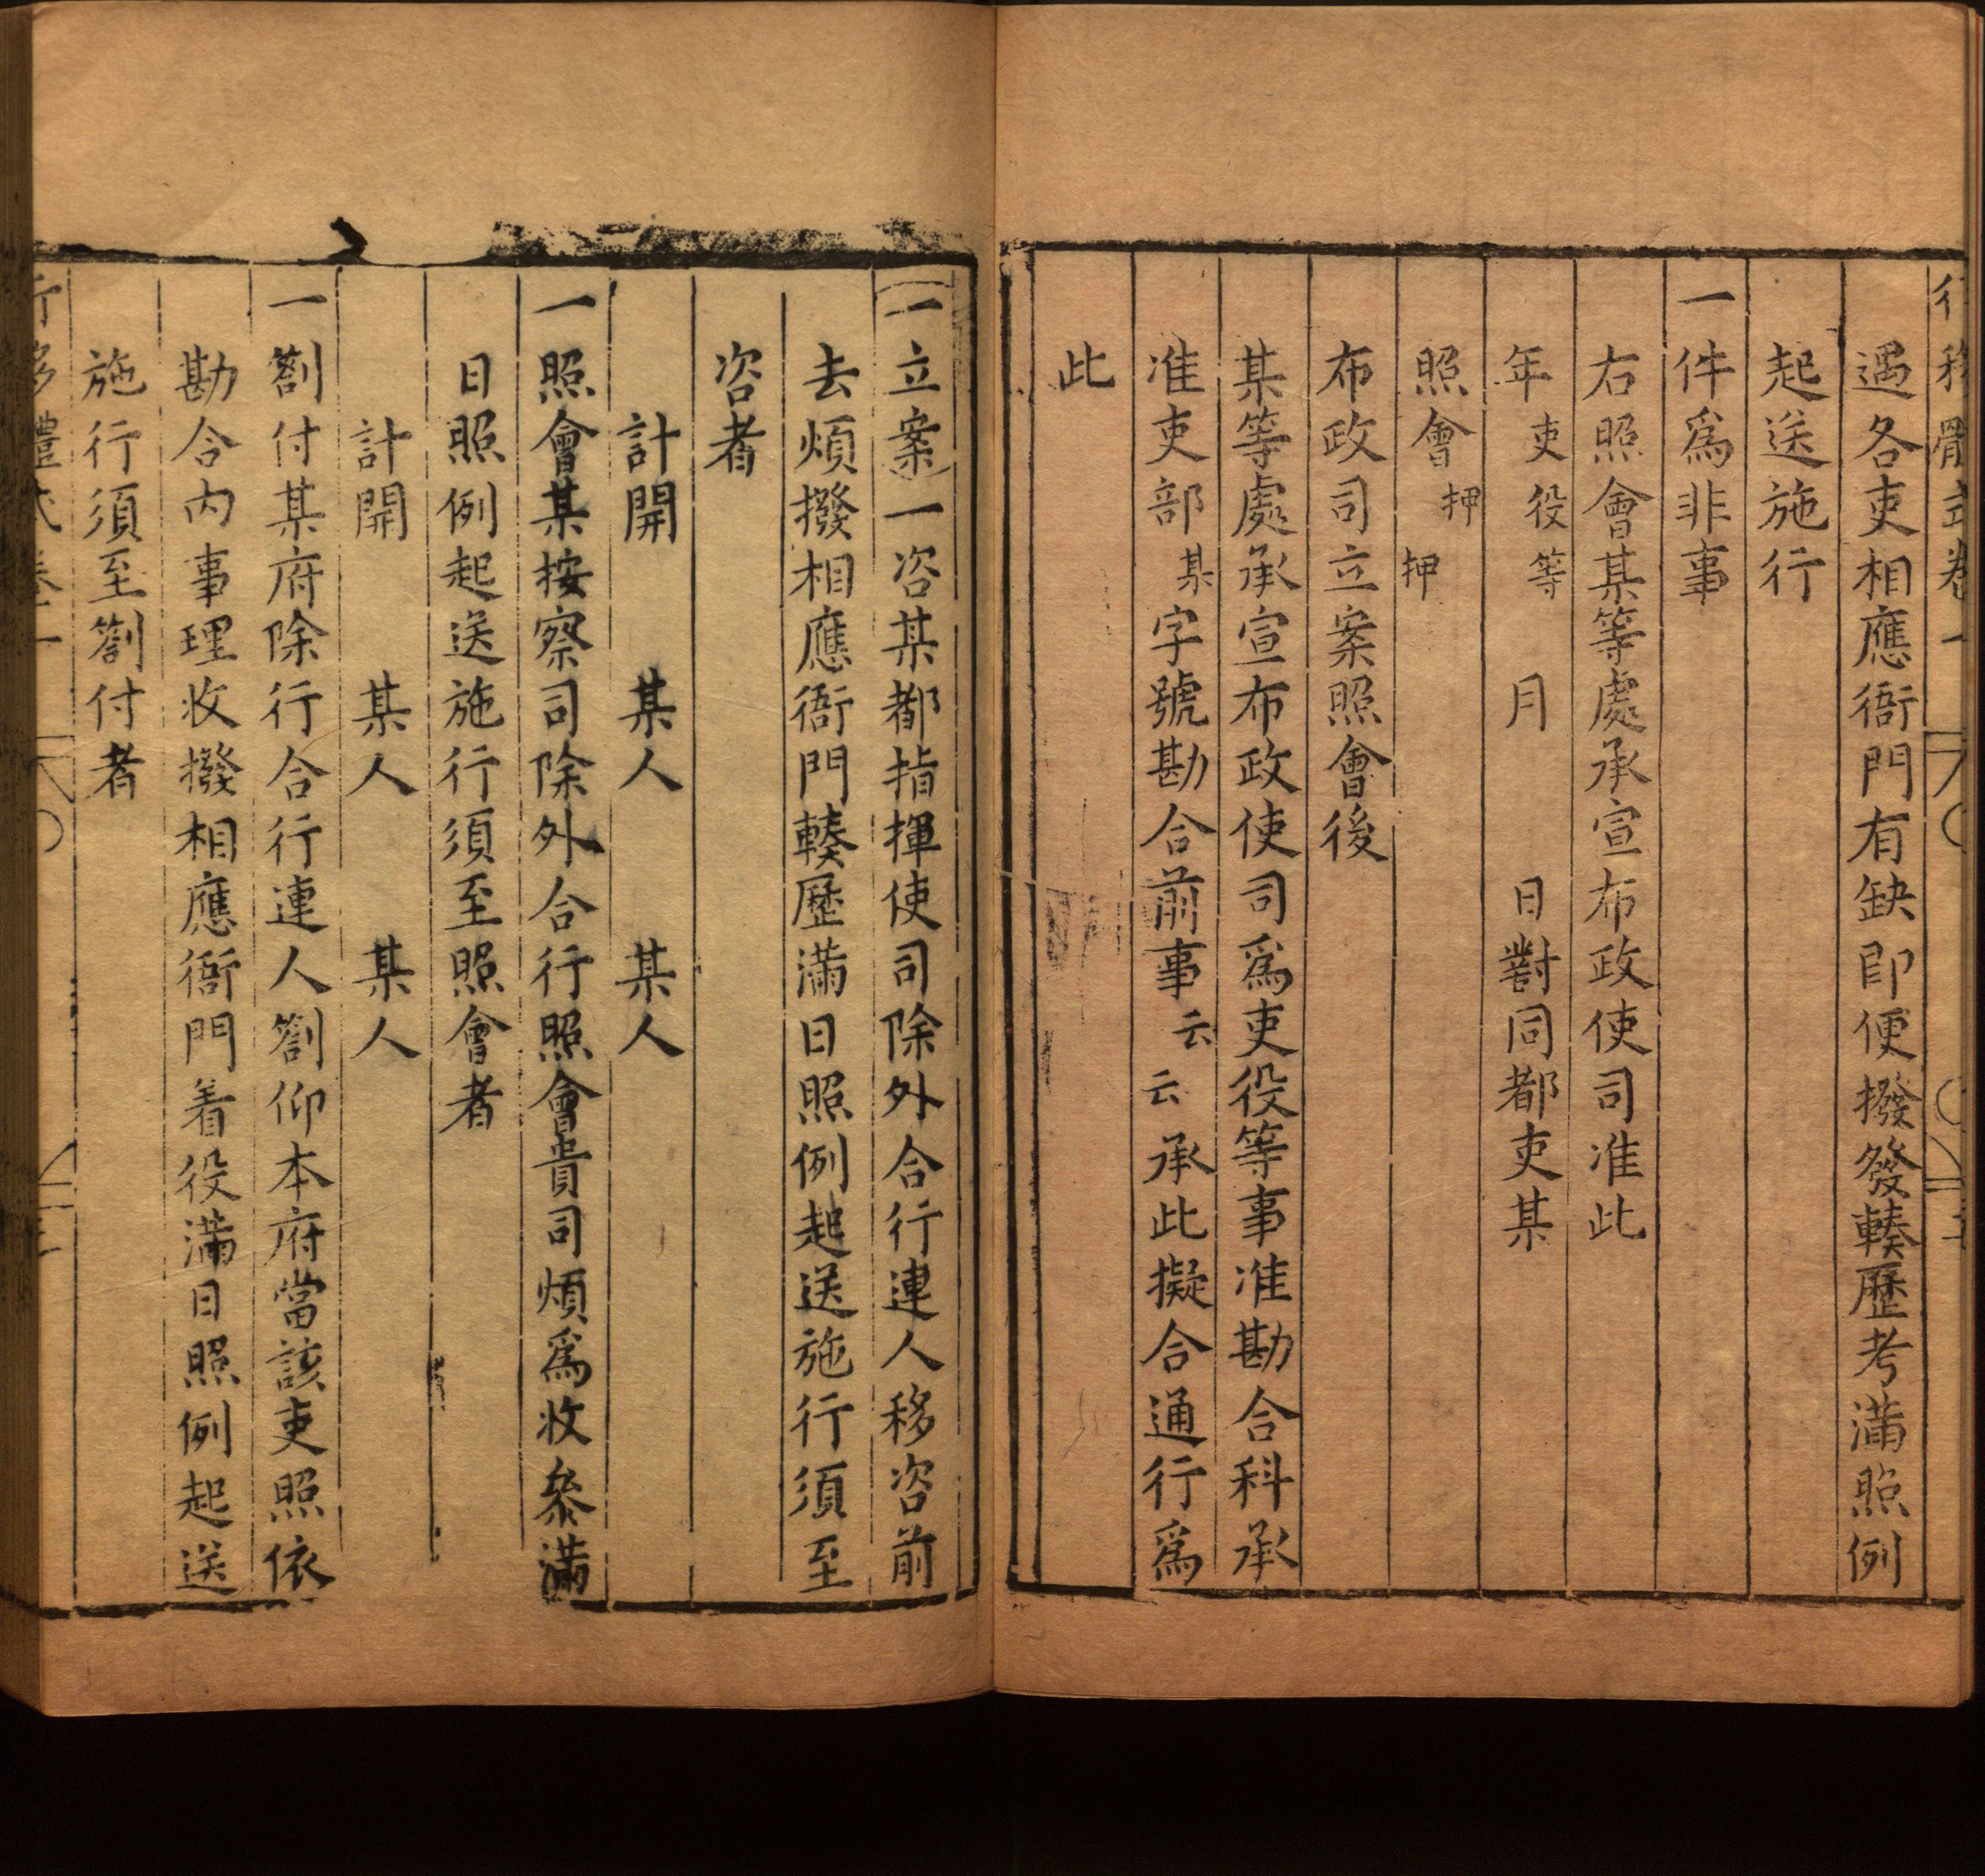 行移體式卷一
遇各吏相應衙門有缺即便撥發輳歷考滿照例
起送施行
一件為非事
右照會某等處承宣布政使司准此
年吏役等月日對同都吏某
照會押押
布政司立案照會後
某等處承宣布政使司為吏役等事准勘合科承
准吏部某字號勘合前事云云承此擬合通行為
此
一立案一咨某都指揮使司除外合行連人移咨前
去煩撥相應衙門輳歷滿日照例起送施行須至
咨者
計開某人某人
一照會某按察司除外合行照會貴司煩為收叅滿
日照例起送施行須至照會者
計開某人某人
一劄付某府除行合行連人劄仰本府當該吏照依
勘合內事理收撥相應衙門着役滿日照例起送
施行須至劄付者
行移體式卷一